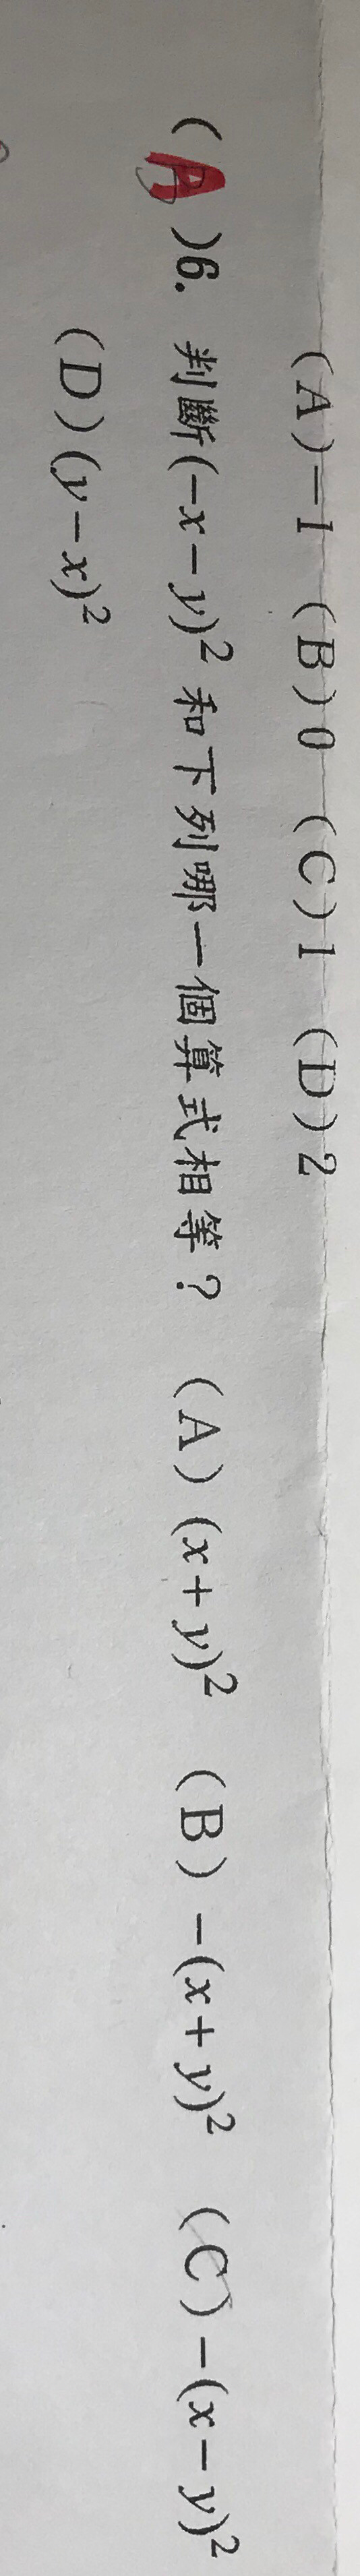 (A)-1 (B)0 (C)1 (D)2
(A)6. 判斷(-x-y)² 和下列哪一個算式相等? (A) (x+y)² (B) -(x+y)² (C) -(x-y)²
(D) (y-x)²